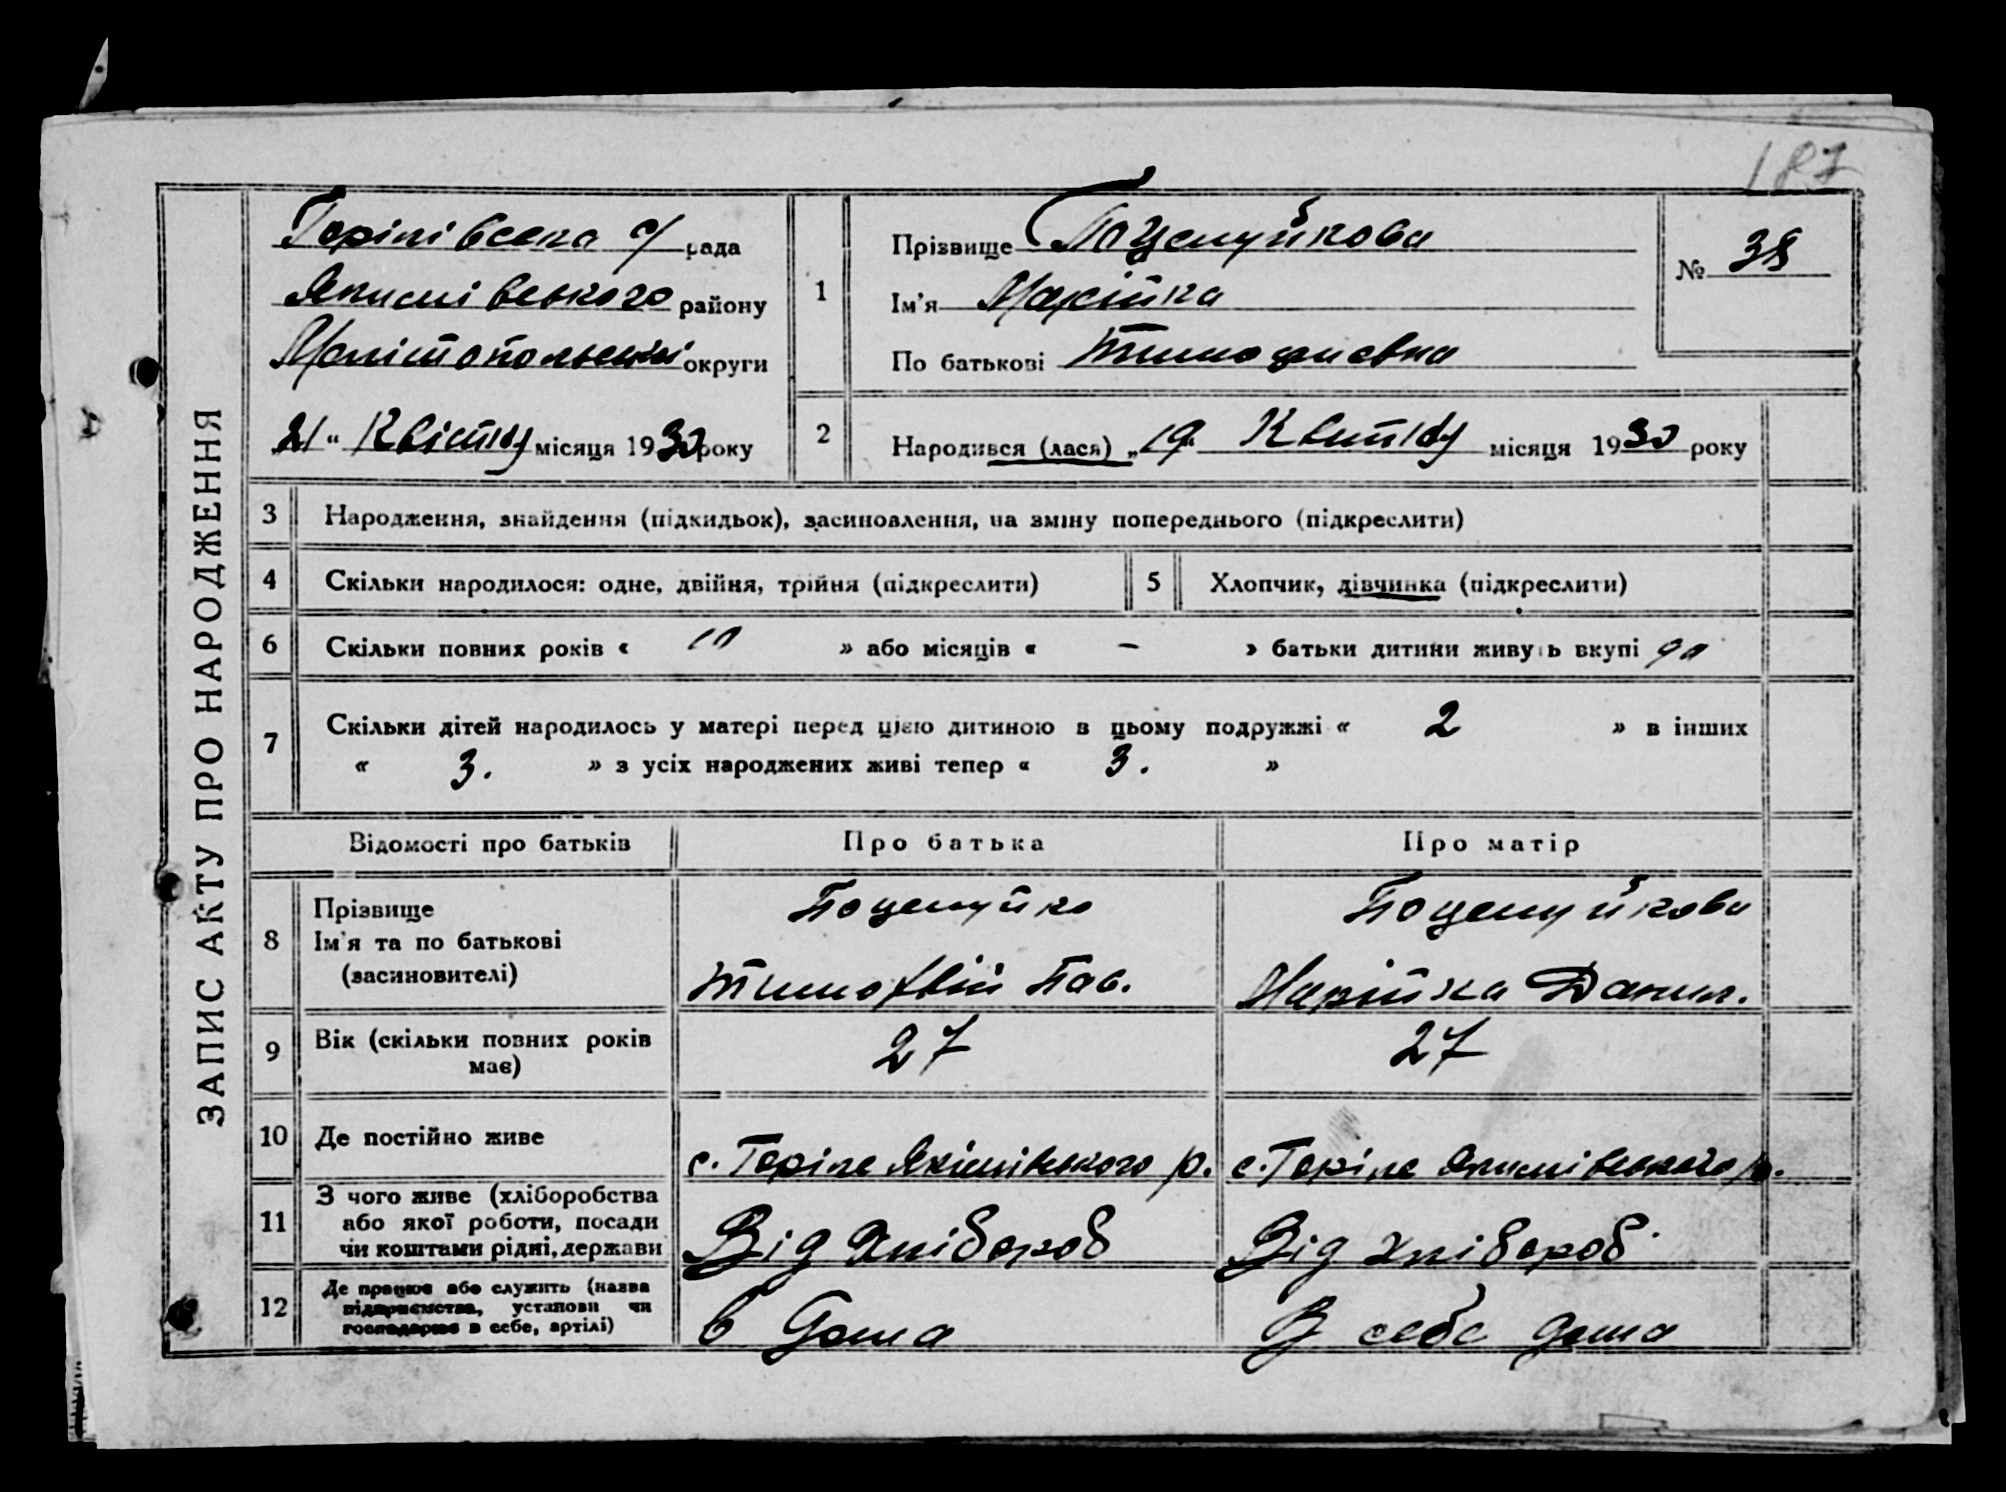 187
ЗАПИС АКТУ ПРО НАРОДЖЕННЯ
Горілівська с/ рада
Якимівського району
Мелітопольської округи
„21“ Квітня місяця 1930 року
1
Прізвище Поцелуйкова
Ім'я Марійка
По батькові Тимофиевна
№ 38
2
Народився (лася) „19“ Квитня місяця 1930 року
3 Народження, знайдення (підкидьок), засиновлення, на зміну попереднього (підкреслити)
4 Скільки народилося: одне, двійня, трійня (підкреслити)
5 Хлопчик, дівчинка (підкреслити)
6 Скільки повних років « 10 » або місяців « – » батьки дитини живуть вкупі
7 Скільки дітей народилось у матері перед цією дитиною в цьому подружжі « 2 » в інших
« 3. » з усіх народжених живі тепер « 3. »
Відомості про батьків Про батька Про матір
8 Прізвище Ім'я та по батькові (засиновителі)
Поцелуйко
Тимофвій Пав.
Поцелуйкова
Марійка Данил.
9 Вік (скільки повних років має) 27 27
10 Де постійно живе с. Горіле Якімівького р. с. Горіле Якимівського р.
11 З чого живе (хліборобства
або якої роботи, посади
чи коштами рідні, держави
Від хлібороб Від хлібороб.
12 Де працює або служить (назва
підприємства, установи чи
господарює в себе, артілі)
в Дома В себе дома